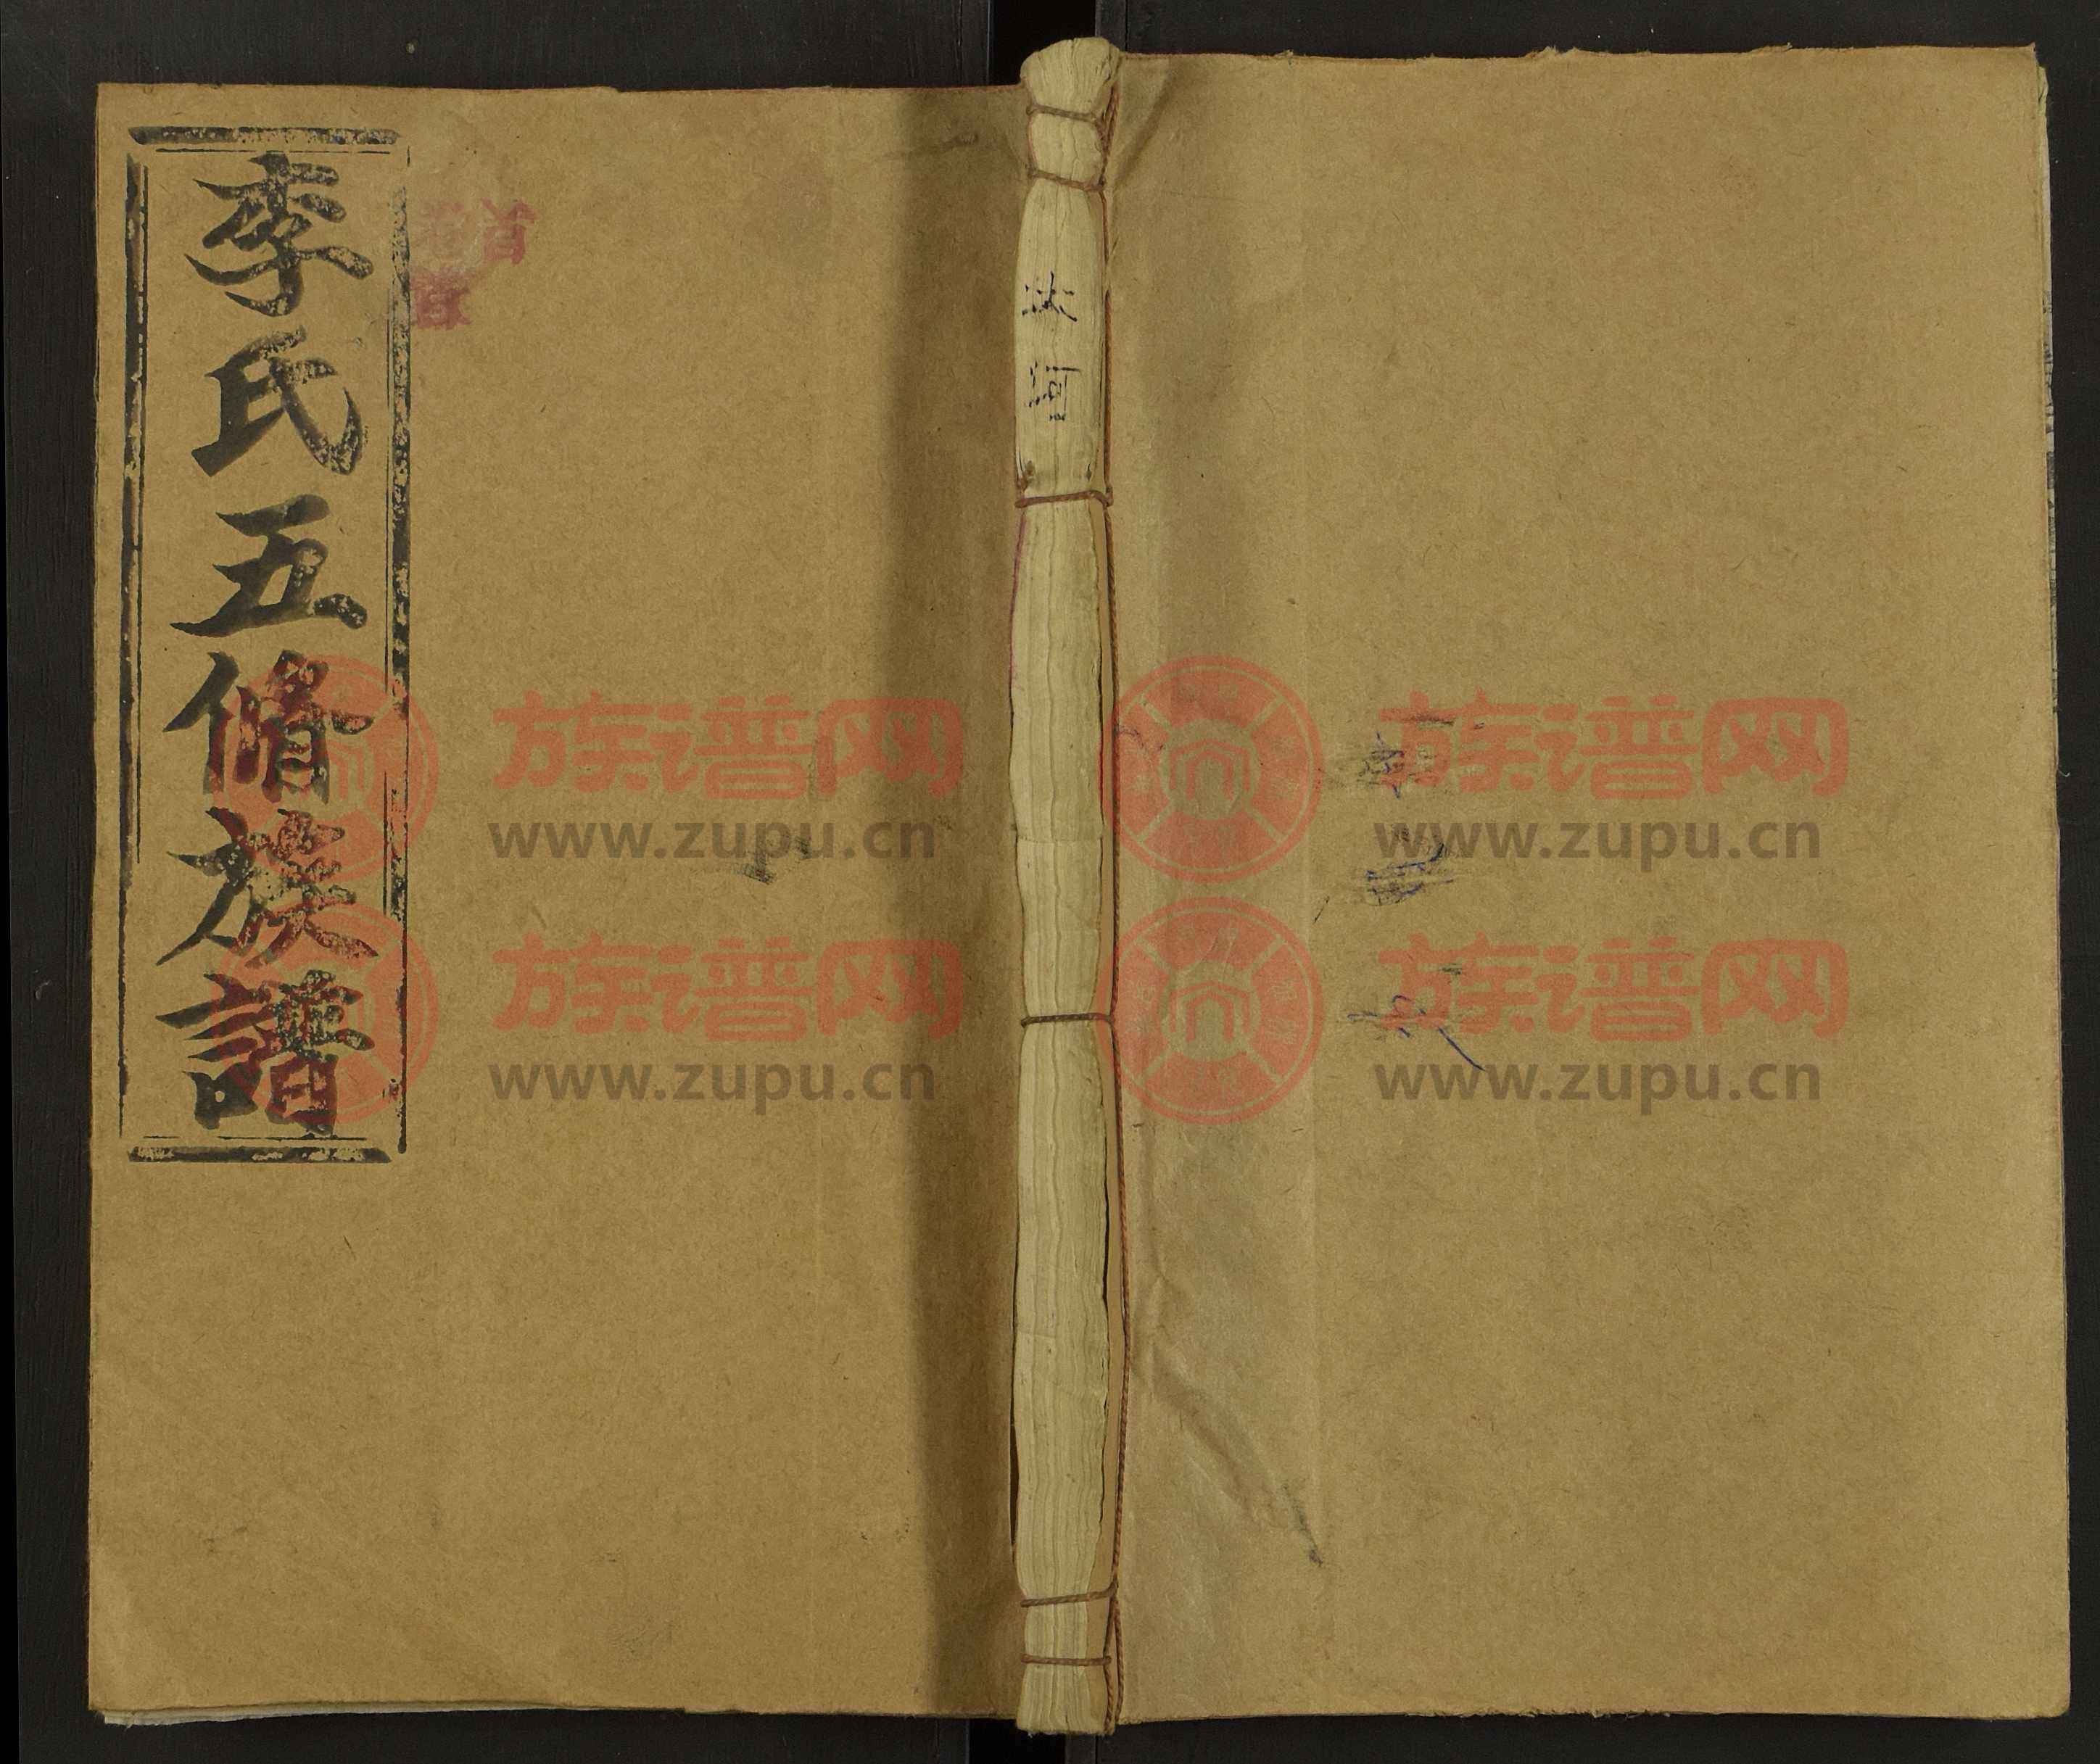 李氏五脩族譜
族谱网
www.zupu.cn
族谱网
www.zupu.cn
族谱网
www.zupu.cn
族谱网
www.zupu.cn